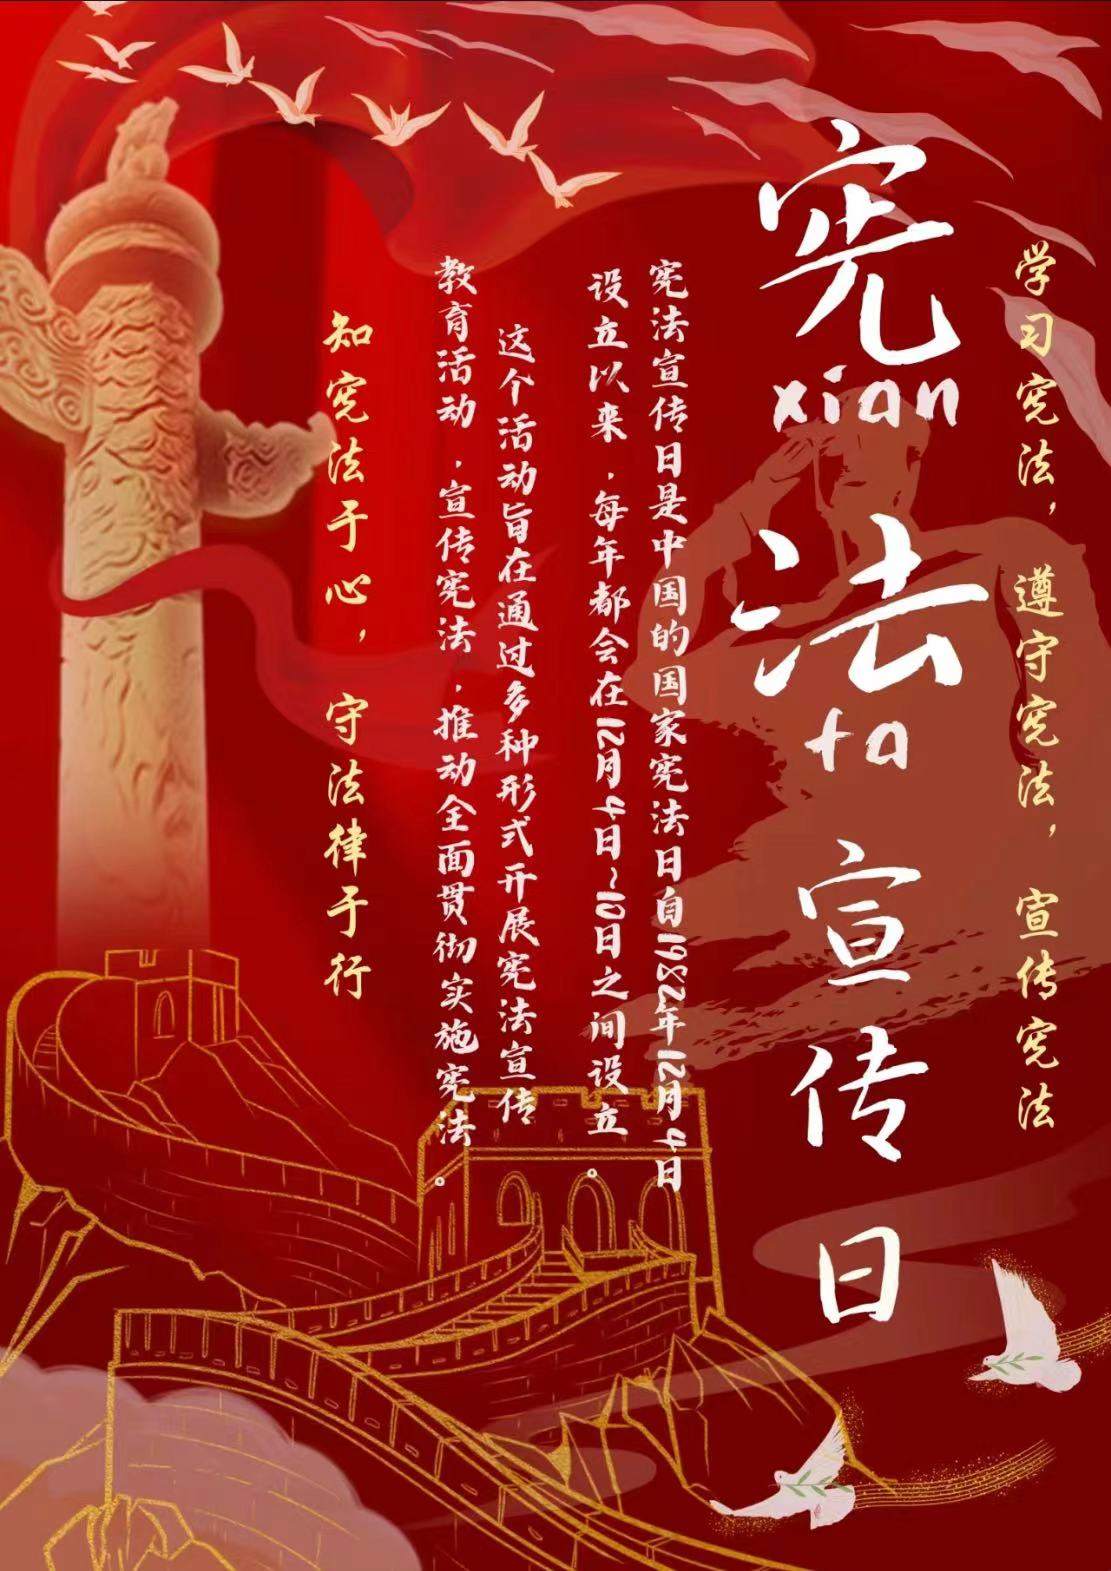 学习宪法，遵守宪法，宣传宪法
宪
xian
法
fa
宣
传
日
宪法宣传日是中国的国家宪法日自1982年12月4日
设立以来，每年都会在12月4日~10日之间设立。
这个活动旨在通过多种形式开展宪法宣传
教育活动，宣传宪法，推动全面贯彻实施宪法。
知宪法于心，守法律于行